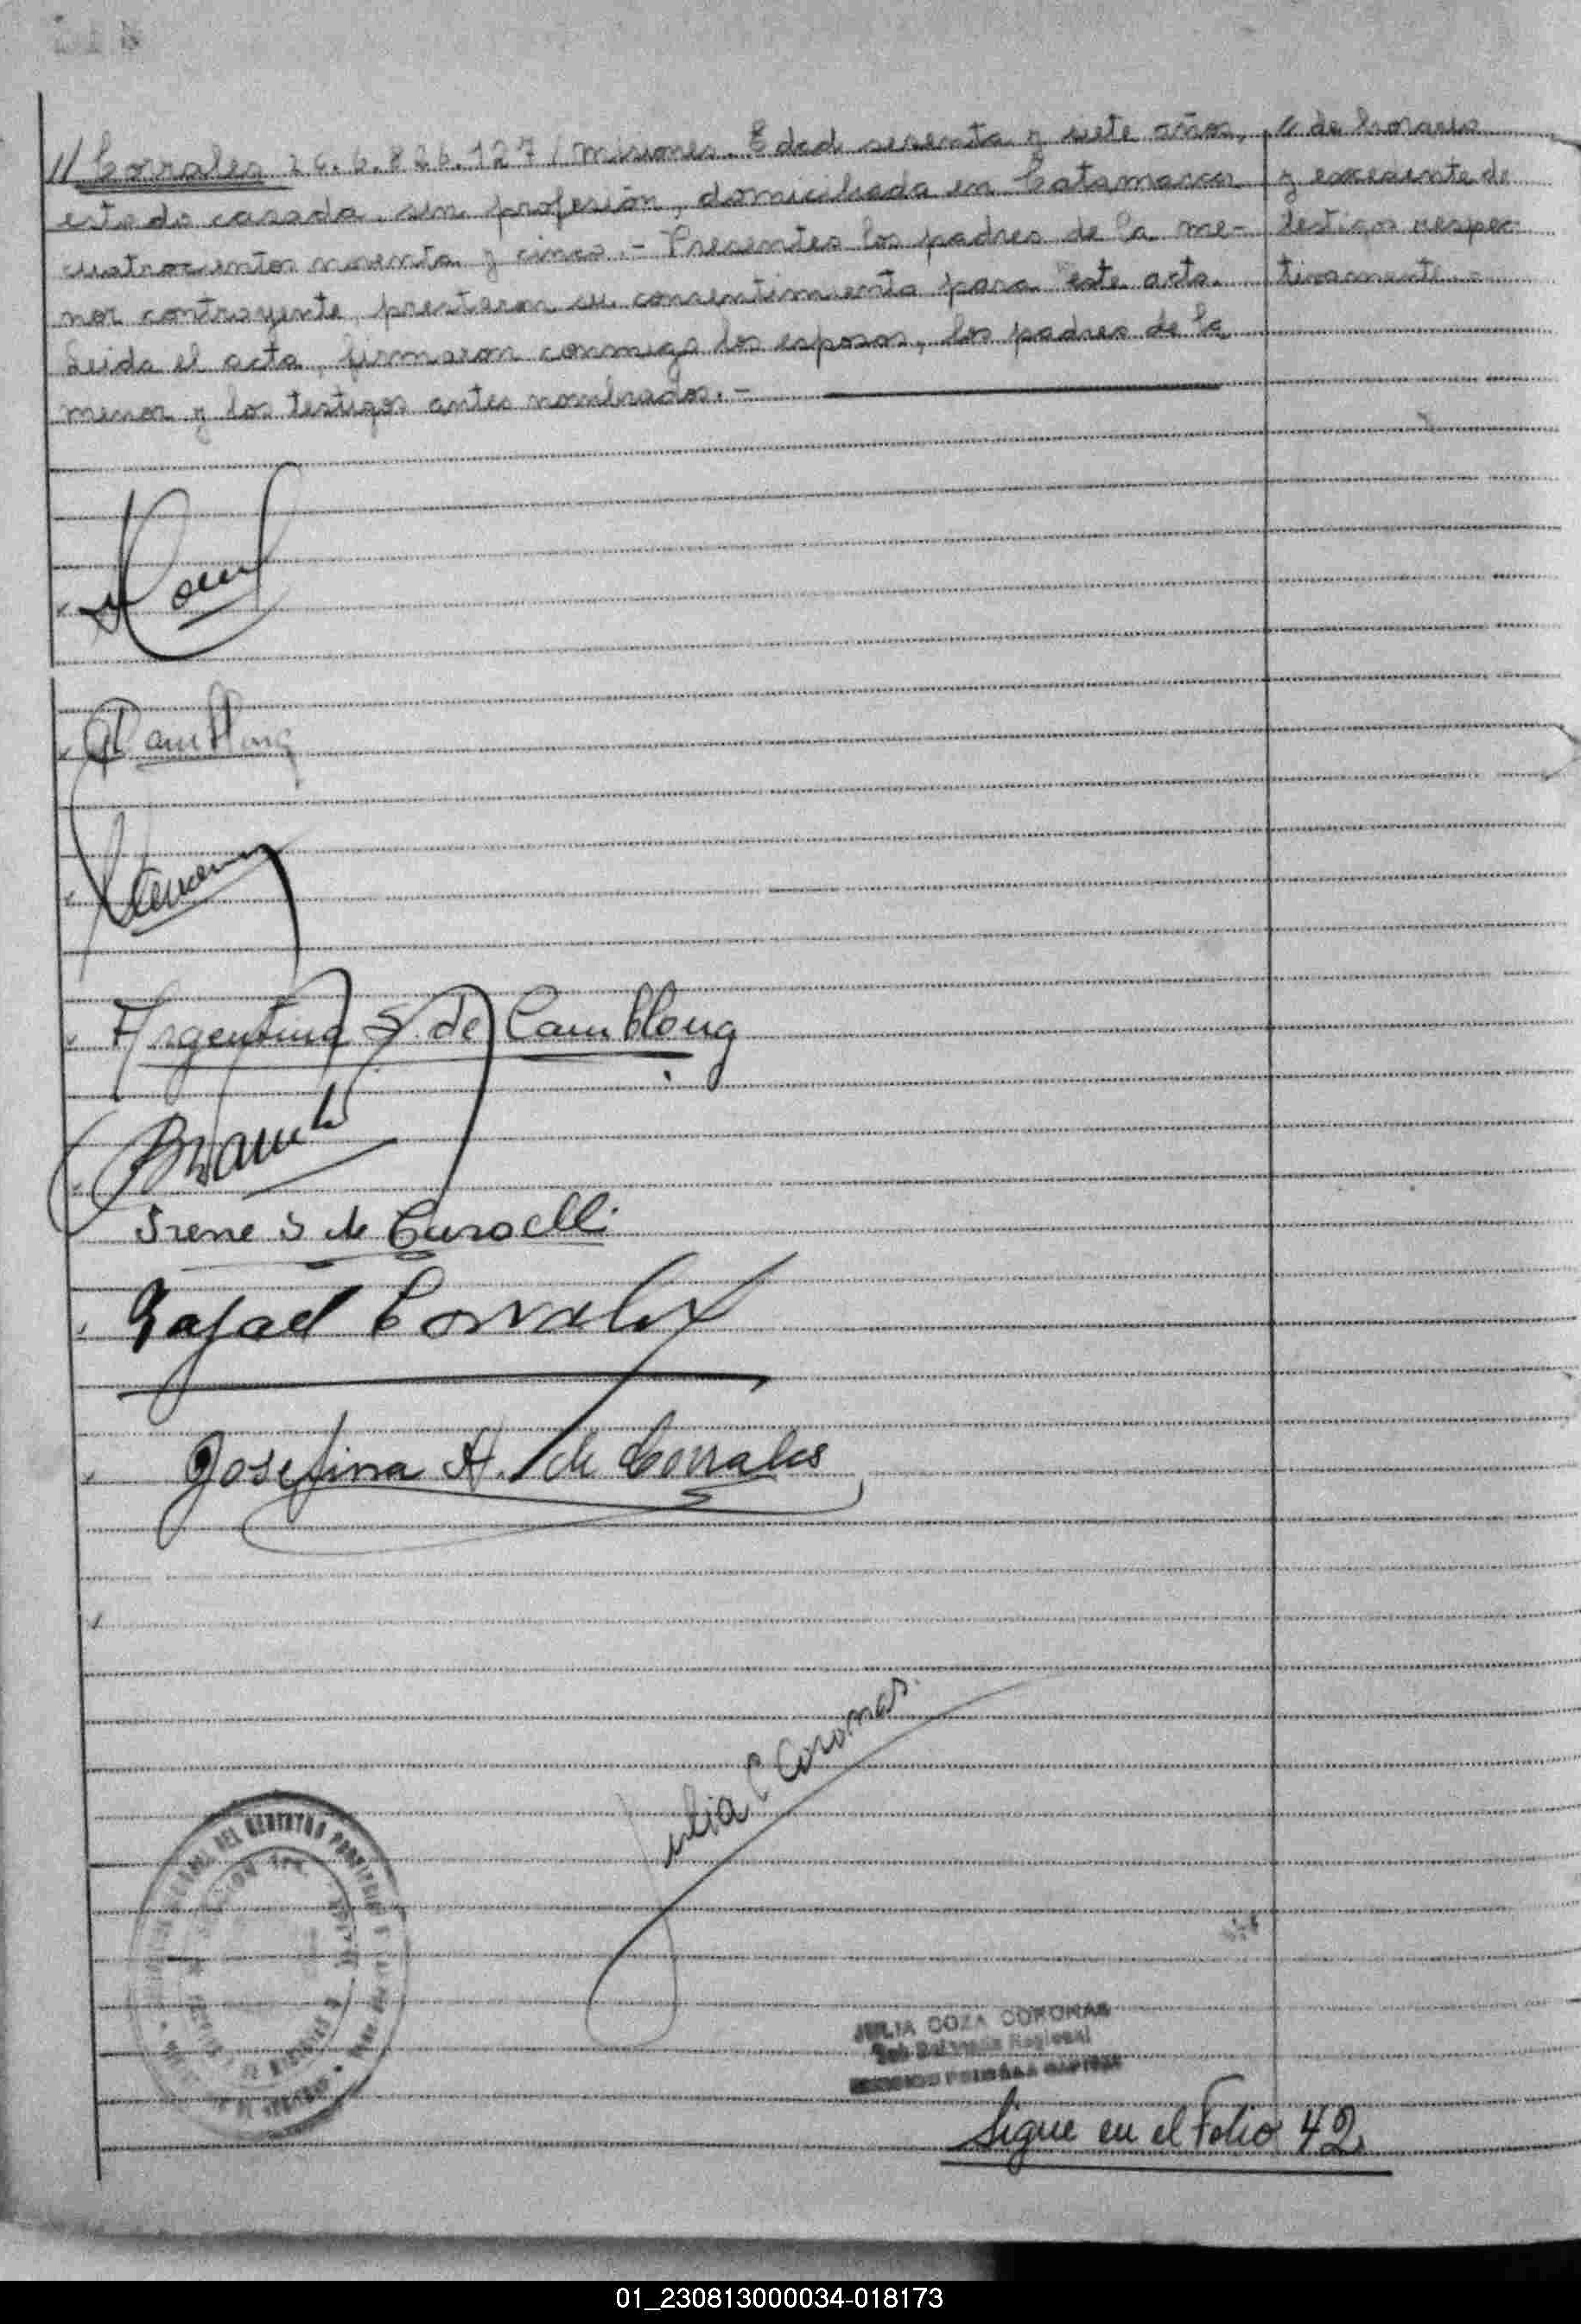 // Corrales L.C. 6.826.127 / Misiones. Edad sesenta y siete años,
estado casada, sin profesión, domiciliada en Catamarca
cuatrocientos noventa y cinco.- Presentes los padres de la me-
nor contrayente, prestaron su consentimiento para este acto.
Leida el acta, firmaron conmigo los esposos, los padres de la
menor y los testigos antes nombrados.-
a de horario
y excedente de
testigos respec-
tivamente.-
Camblong
Argentina S. de Camblong
Irene S de Curselli
Rafael Corrales
Josefina A. de Corrales
Julia C Coromas
DEL REGISTRO PROVINCIAL
JULIA COZA COROMAS
Sub Delegada Regional
Sigue en el Folio 42
01_230813000034-018173